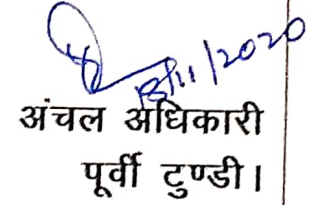 13/11/2020
अंचल अधिकारी
पूर्वी टुण्डी।